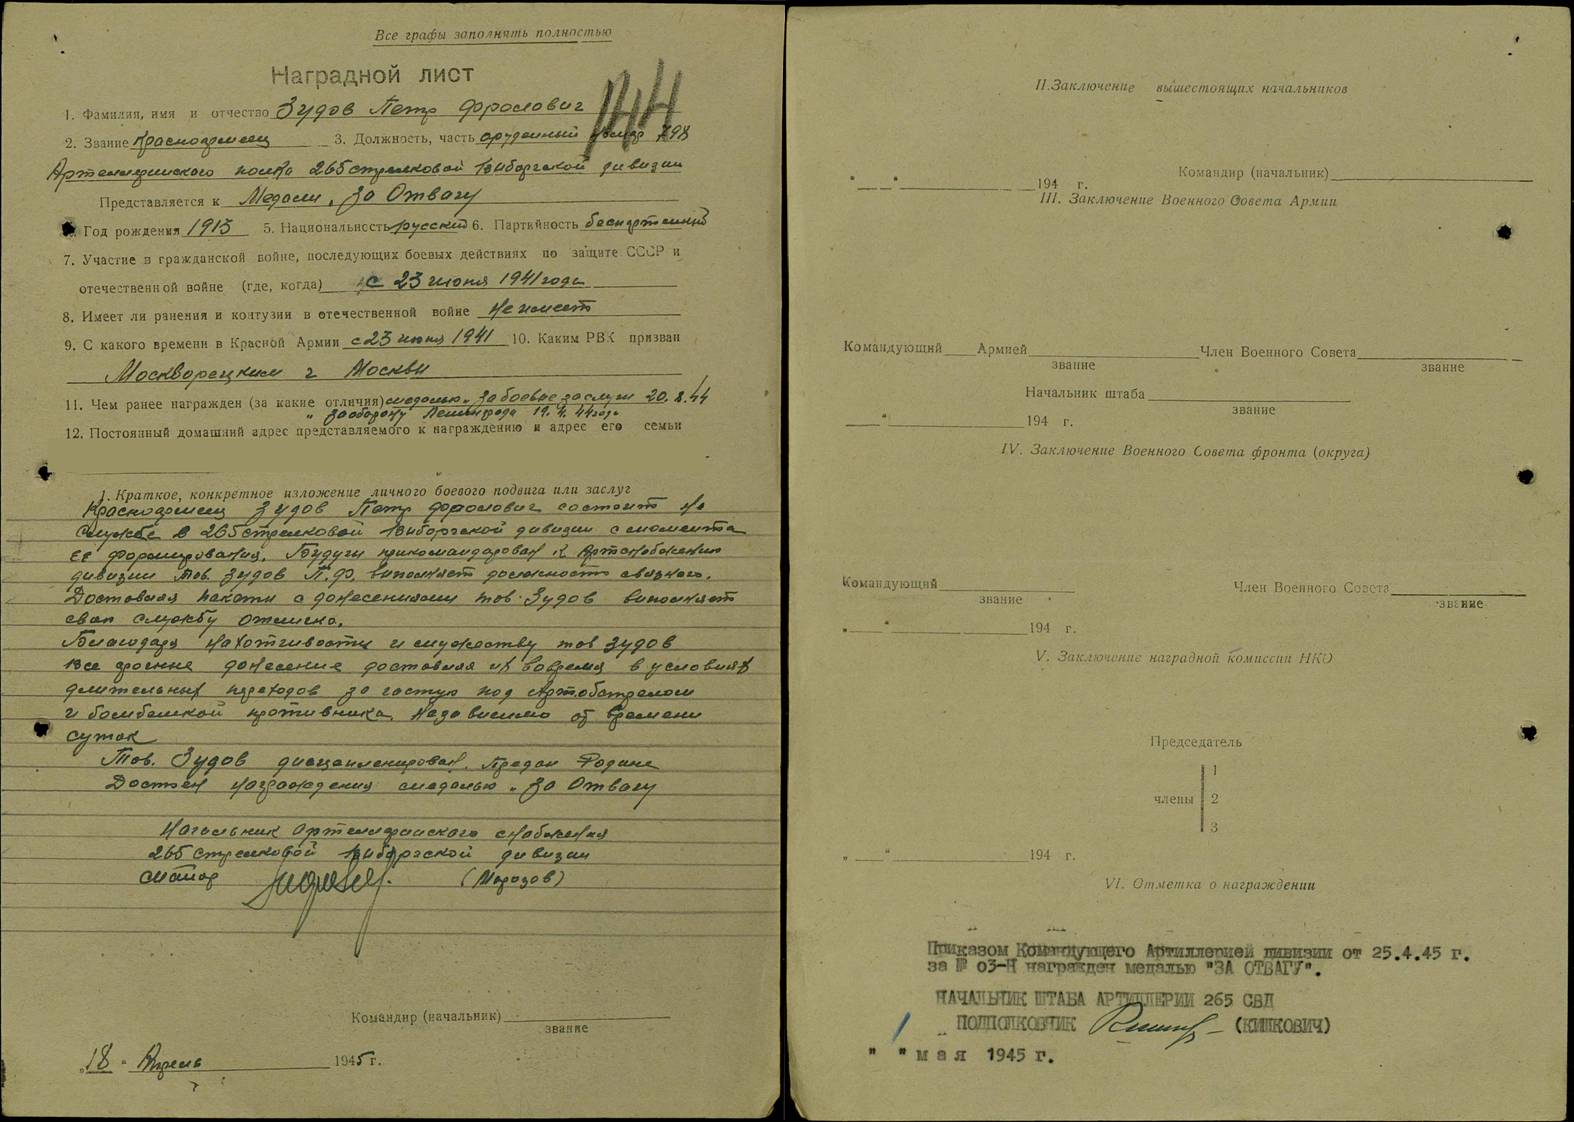 Все графы заполнять полностью
Наградной лист
144
1. Фамилия, имя и отчество Зудов Петр Фролович
2. Звание Красноармеец 3. Должность, часть орудейный номер 798
Артеллерийского полка 265 стрелковой Выборгской дивизии
Представляется к Медали „За Отвагу
Год рождения 1913 5. Национальность русский 6. Партийность беспартейный
7. Участие в гражданской войне, последующих боевых действиях по защите СССР и
отечественной войне (где, когда) с 23 июня 1941 года
8. Имеет ли ранения и контузии в отечественной войне Не имеет
9. С какого времени в Красной Армии с 23 июня 1941 10. Каким РВК призван
Москворецким г Москвы
11. Чем ранее награжден (за какие отличия) медалью „За боевые заслуги 20.8.44
„ За оборону Ленинграда 19.4.44 года
12. Постоянный домашний адрес представляемого к награждению и адрес его семьи
1. Краткое, конкретное изложение личного боевого подвига или заслуг
Красноармеец Зудов Петр Фролович состоит на
службе в 265 стрелковой Выборгской дивизии с момента
ее формирования. Будучи прикомандирован к Артснабжению
дивизии тов. Зудов П.Ф. выполняет должность связного.
Доставляя пакеты с донесениями тов. Зудов выполняет
свою службу отлично.
Благодаря находчивости и мужеству тов Зудов
все срочные донесение доставлял их вовремя в условиях
длительных переходов за частую под Артобстрелом
и бомбежкой противника, независимо от времени
суток
Тов. Зудов дисциплинирован. Предан Родине
Достоен награждения медалью „За Отвагу
Начальник Артеллерийского снабжения
265 стрелковой Выборгской дивизии
майор (Морозов)
Командир (начальник)
звание
„18 „ Апрель 1945 г.
II. Заключение вышестоящих начальников
Командир (начальник)
"__" 194 г.
III. Заключение Военного Совета Армии
Командующий Армией Член Военного Совета
звание звание
Начальник штаба
звание
"__" 194 г.
IV. Заключение Военного Совета фронта (округа)
Командующий Член Военного Совета
звание звание
"__" 194 г.
V. Заключение наградной комиссии НКО
Председатель
1
члены 2
3
"__" 194 г.
VI. Отметка о награждении
Приказом Командующего Артиллерией дивизии от 25.4.45 г.
за № 03-Н награжден медалью "ЗА ОТВАГУ".
НАЧАЛЬНИК ШТАБА АРТИЛЛЕРИИ 265 СВД
ПОДПОЛКОВНИК (КИШКОВИЧ)
" " мая 1945 г.